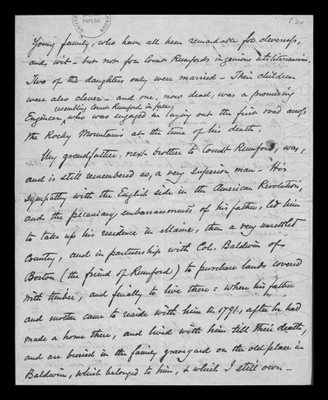 Young family, who have all been remarkable for cleverness,
and wit - but non for Count Rumford's ingenious utilitarianism.
Two of the daughters only were married - Their children
were also clever - and one, now dead, was a promising
resembling Count Rumford in face,
Engineer, who was engaged in laying out the first road across
the Rocky Mountains at the time of his death.
My grandfather, next brother to Count Rumford, was,
and is still remembered as, a very superior man - His
sympathy with the English side in the American Revolution,
and the pecuniary embarrassments of his father, led him
to take up his residence in Maine, then a very unsettled
Country, and in partnership with Col. Baldwin of
Boston (the friend of Rumford) to purchase lands covered
with timber, and finally to live there: when his father
and mother came to reside with him in 1791, after he had
made a home there, and lived with him till their death,
and are buried in the family graveyard on the old place in
Baldwin, which belonged to him, & which I still own -